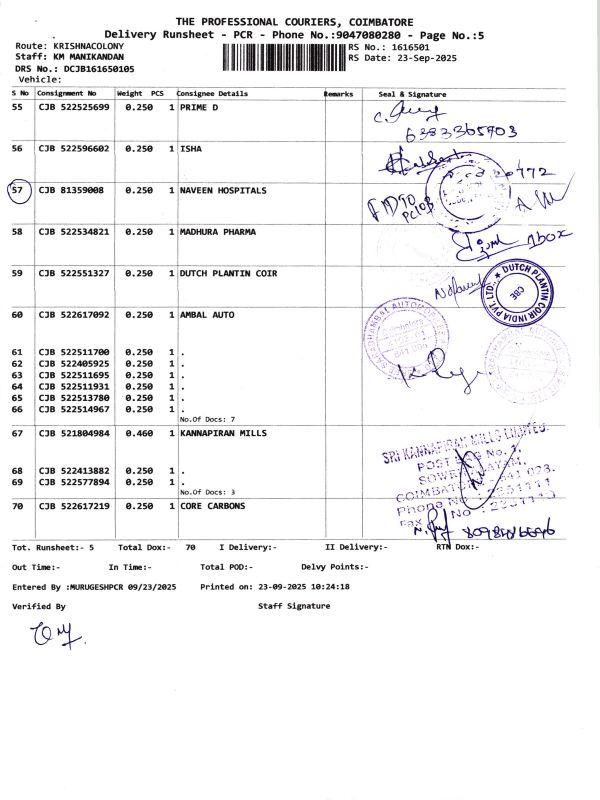 THE PROFESSIONAL COURIERS, COIMBATORE
Delivery Runsheet - PCR - Phone No.:9047080280 - Page No.:5
Route: KRISHNACOLONY
RS No.: 1616501
Staff: KM MANIKANDAN
RS Date: 23-Sep-2025
DRS No.: DCJB161650105
Vehicle:
S No Consignment No Weight PCS Consignee Details Remarks Seal & Signature
55 CJB 522525699 0.250 1 PRIME D
6383365703
56 CJB 522596602 0.250 1 ISHA
57 CJB 81359008 0.250 1 NAVEEN HOSPITALS
58 CJB 522534821 0.250 1 MADHURA PHARMA
1box
59 CJB 522551327 0.250 1 DUTCH PLANTIN COIR
DUTCH PLANTIN COIR INDIA PVT. LTD.
CBE
60 CJB 522617092 0.250 1 AMBAL AUTO
61 CJB 522511700 0.250 1 .
62 CJB 522405925 0.250 1 .
63 CJB 522511695 0.250 1 .
64 CJB 522511931 0.250 1 .
65 CJB 522513780 0.250 1 .
66 CJB 522514967 0.250 1 .
No.Of Docs: 7
67 CJB 521804984 0.460 1 KANNAPIRAN MILLS
SRI KANNAPIRAN MILLS LIMITED.
68 CJB 522413882 0.250 1 .
69 CJB 522577894 0.250 1 .
No.Of Docs: 3
70 CJB 522617219 0.250 1 CORE CARBONS
Tot. Runsheet:- 5 Total Dox:- 70 I Delivery:- II Delivery:- RTN Dox:-
Out Time:- In Time:- Total POD:- Delvy Points:-
Entered By :MURUGESHPCR 09/23/2025 Printed on: 23-09-2025 10:24:18
Verified By Staff Signature